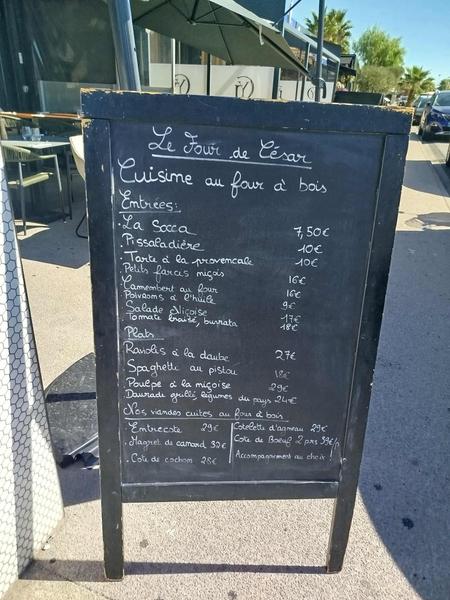 Le Four de César
Cuisine au four à bois
Entrées:
. La Socca 7,50€
. Pissaladière 10€
. Tarte à la provencale 10€
. Petits farcis niçois 16€
. Camembert au four 16€
. Poivrons à l'huile 9€
. Salade Niçoise 17€
. Tomate braisé, burrata 18€
Plats
. Raviolis à la daube 27€
. Spaghetti au pistou
. Poulpe à la niçoise 29€
. Daurade grillé légumes du pays 24€
. Nos viandes cuites au four à bois
. Entrecote 29€
. Magret de canard 32€
. Cote de cochon 28€
. Cotelette d'agneau 29€
. Cote de Boeuf 2 prs 39€/p
. Accompagnement au choix!